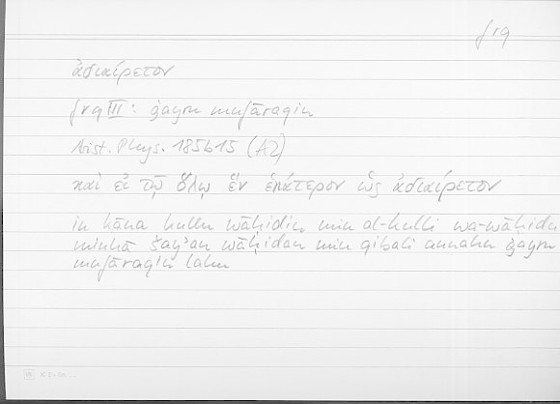 frq
ἀδιαίρετον
frq III: ġayru mufāraqin
Arist. Phys. 185b15 (A2)
καὶ εἰ τῷ ὅλῳ ἓν ἑκάτερον ὡς ἀδιαίρετον
in kāna kullu wāḥidin min al-kulli wa-wāḥidu
minhā šayʾan wāḥidan min qibali annahu ġayru
mufāraqin lahu